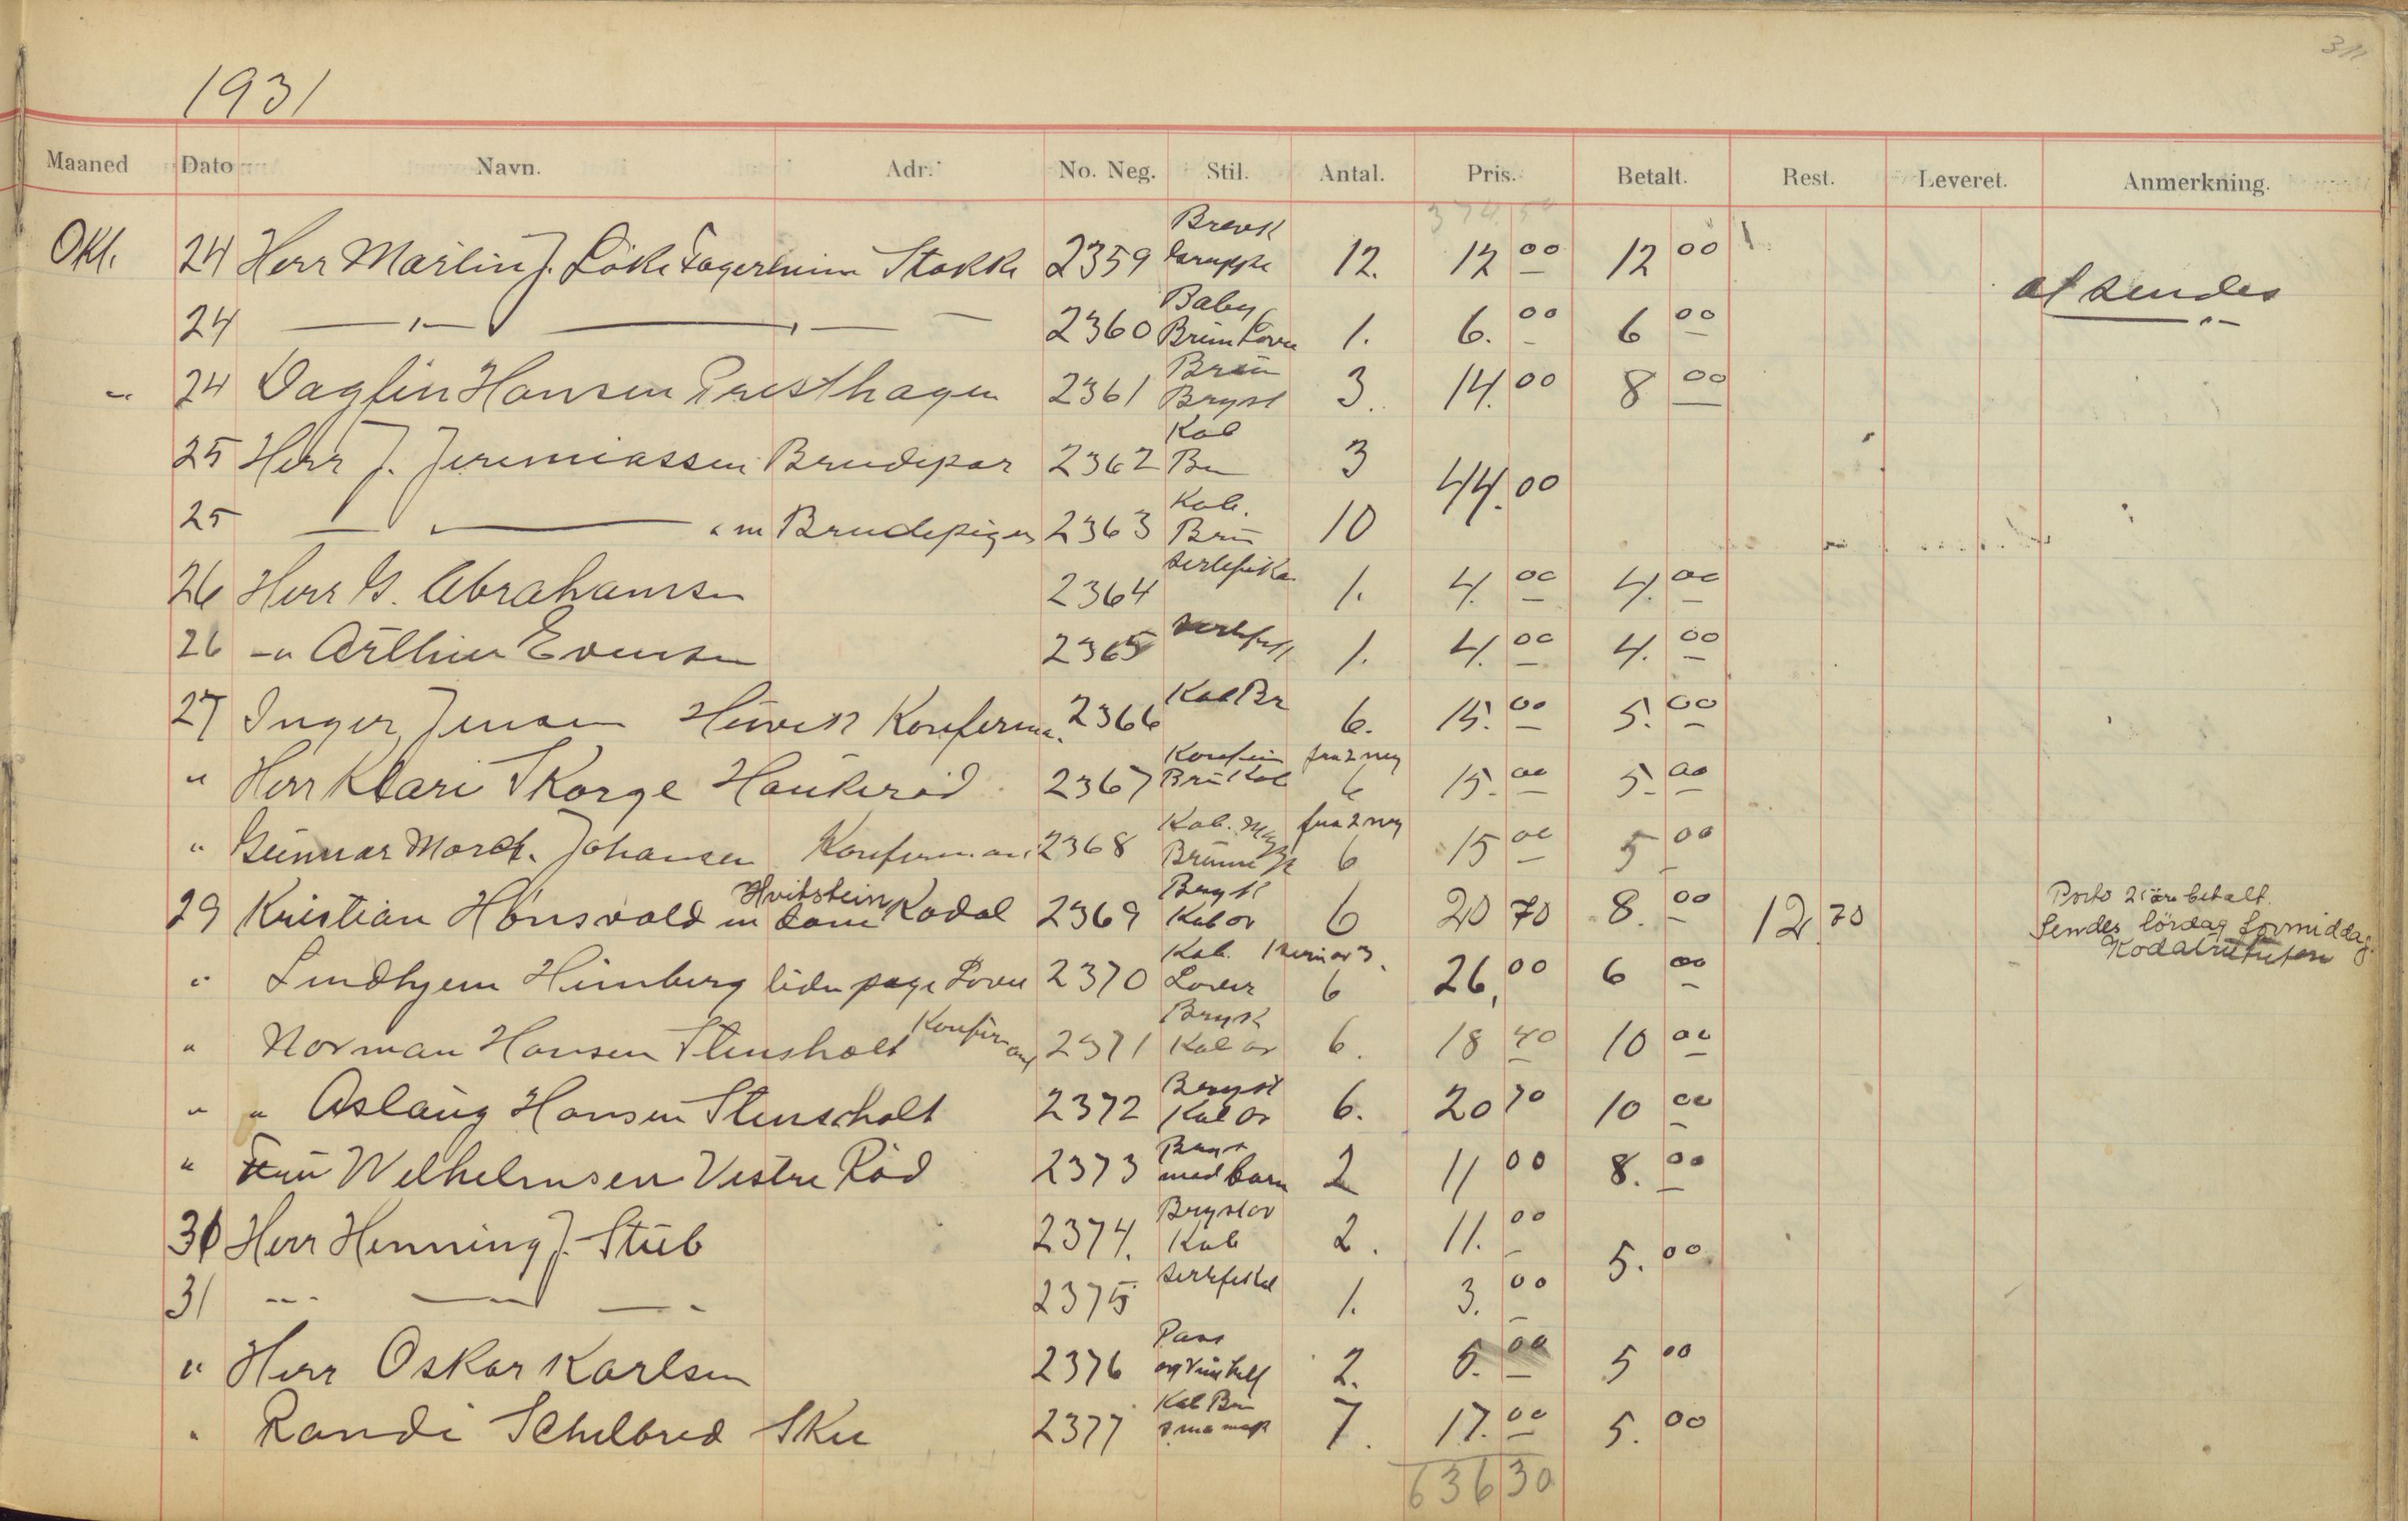 311
1931
Maaned Dato Navn. Adr. No. Neg. Stil. Antal. Pris. Betalt. Rest. Leveret. Anmerkning.
374 50
Okt. 24 Herr Martin J. Löke Fagerheim Stokke 2359 Brevk Gruppe 12. 12 00 12 00 at sendes
24 — " — — " — 2360 Baby Brun 1. 6. 00 6 00 " —
" 24 Dagfin Hansen Presthagen 2361 Brun Bryst 3. 14. 00 8 00
25 Herr J. Jeremiassen Brudepar 2362 Kab Br 3 44.00
25 — " — m Brudepiger 2363 Kab. Brü 10
26 Herr G. Abrahamsen 2364 1. 4. 00 4. 00
26 — " Arthur Evensen 2365 1. 4. 00 4. 00
27 Inger Jensen Konfirma. 2366 Kab Br 6. 15. 00 5. 00
" Herr Klari Skorge Haukeröd 2367 Konfirm Brü Kab fra 2 neg 6 15. 00 5. 00
" Gunnar Mord. Johansen Konfirman. 2368 Kab. fra 2 neg 6 15 00 5 00
29 Kristian Hönsvald m dame Hvitstein Kodal 2369 Bryst Kab or 6 20 70 8. 00 12.70 Porto 25 öre betalt.
Sendes lördag formiddag.
Kodalruten
" Lindhjem Himberg liden page 2370 Kab. 6 26,00 6 00
" Norman Hansen Stensholt Konfirmant 2371 Bryst Kab or 6. 18 40 10 00
" " Aslaug Hansen Stensholt 2372 Bryst Kab or 6. 20 70 10 00
" Fru Wilhelmsen Vestre Röd 2373 Bryst med barn 2 11 00 8. 00
31 Herr Henning J. Stub 2374. Bryst or Kab 2. 11. 00 5. 00
31 — " — — " — 2375 1. 3. 00
" Herr Oskar Karlsen 2376 Pass 2. 5. 00 5 00
" Randi Schelbred Ske 2377 Kab Brü 7. 17. 00 5. 00
636 30